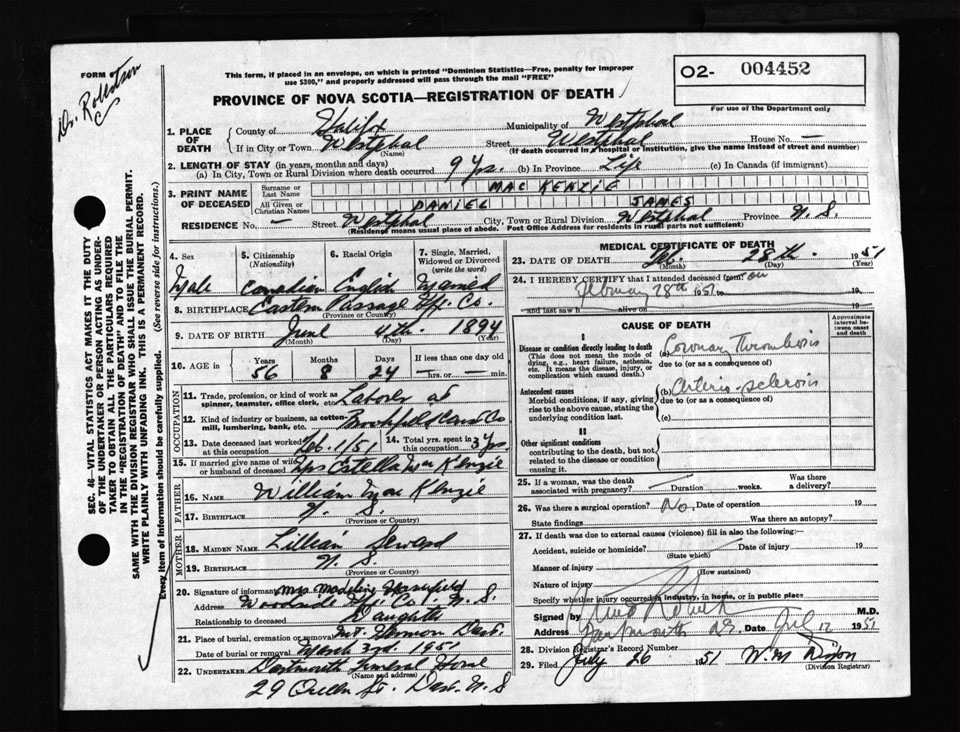 FORM
Dr. Robertson
This form, if placed in an envelope, on which is printed "Dominion Statistics—Free, penalty for improper
use $300," and properly addressed will pass through the mail "FREE"
O2- 004452
For use of the Department only
PROVINCE OF NOVA SCOTIA—REGISTRATION OF DEATH
SEC. 46—VITAL STATISTICS ACT MAKES IT THE DUTY
OF THE UNDERTAKER OR PERSON ACTING AS UNDER-
TAKER TO OBTAIN ALL THE PARTICULARS REQUIRED
IN THE "REGISTRATION OF DEATH" AND TO FILE THE
SAME WITH THE DIVISION REGISTRAR WHO SHALL ISSUE THE BURIAL PERMIT.
WRITE PLAINLY WITH UNFADING INK. THIS IS A PERMANENT RECORD.
Every item of information should be carefully supplied. (See reverse side for instructions.)
1. PLACE OF DEATH County of Halifax Municipality of Westphal
If in City or Town Westphal (Name) Street Westphal House No. —
(If death occurred in a hospital or institution, give the name instead of street and number)
2. LENGTH OF STAY (in years, months and days)
(a) In City, Town or Rural Division where death occurred 9 yrs. (b) In Province Life (c) In Canada (if immigrant)
3. PRINT NAME OF DECEASED Surname or Last Name MAC KENZIE
All Given or Christian Names DANIEL JAMES
RESIDENCE No. — Street Westphal City, Town or Rural Division Westphal Province N.S.
(Residence means usual place of abode. Post Office Address for residents in rural parts not sufficient)
4. Sex Male
5. Citizenship (Nationality) Canadian
6. Racial Origin English
7. Single, Married, Widowed or Divorced (write the word) Married
8. BIRTHPLACE Eastern Passage Hfx. Co.
(Province or Country)
9. DATE OF BIRTH June 4th. 1894
(Month) (Day) (Year)
10. AGE in Years 56 Months 8 Days 24 If less than one day old — hrs. or — min.
OCCUPATION
11. Trade, profession, or kind of work as spinner, teamster, office clerk, etc. Laborer at
12. Kind of industry or business, as cotton-mill, lumbering, bank, etc. Brookfield Const Co
13. Date deceased last worked at this occupation Feb. 1/51 14. Total yrs. spent in this occupation 3 yrs.
15. If married give name of wife or husband of deceased Mrs Catella Mac Kenzie
FATHER
16. NAME William Mac Kenzie
17. BIRTHPLACE N. S.
(Province or Country)
MOTHER
18. MAIDEN NAME Lillian Seward
19. BIRTHPLACE N. S.
(Province or Country)
20. Signature of informant Mrs Madeline
Address Woodside Hfx. Co. N.S.
Relationship to deceased Daughter
21. Place of burial, cremation or removal Mt. Hermon Dart.
Date of burial or removal March 3rd 1951
22. UNDERTAKER Dartmouth Funeral Home
(Name and address)
29 Queen St. Dart. N.S
MEDICAL CERTIFICATE OF DEATH
23. DATE OF DEATH Feb. 28th. 1951
(Month) (Day) (Year)
24. I HEREBY CERTIFY that I attended deceased from on
February 28th 1951 to 19
and last saw h alive on 19
CAUSE OF DEATH
Approximate interval between onset and death
I
Disease or condition directly leading to death
(This does not mean the mode of dying, e.g., heart failure, asthenia, etc. It means the disease, injury, or complication which caused death.)
(a) Coronary Thrombosis
due to (or as a consequence of)
Antecedent causes
Morbid conditions, if any, giving rise to the above cause, stating the underlying condition last.
(b) Arterio-sclerosis
due to (or as a consequence of)
(c)
II
Other significant conditions
contributing to the death, but not related to the disease or condition causing it.
25. If a woman, was the death associated with pregnancy? Duration weeks. Was there a delivery?
26. Was there a surgical operation? No. Date of operation 19
State findings Was there an autopsy?
27. If death was due to external causes (violence) fill in also the following:—
Accident, suicide or homicide? (State which) Date of injury 19
Manner of injury (How sustained)
Nature of injury
Specify whether injury occurred in industry, in home, or in public place
Signed by M.D.
Address Dartmouth NS. Date July 12 1951
28. Division Registrar's Record Number
29. Filed July 26 1951 W. M Dixon
(Division Registrar)